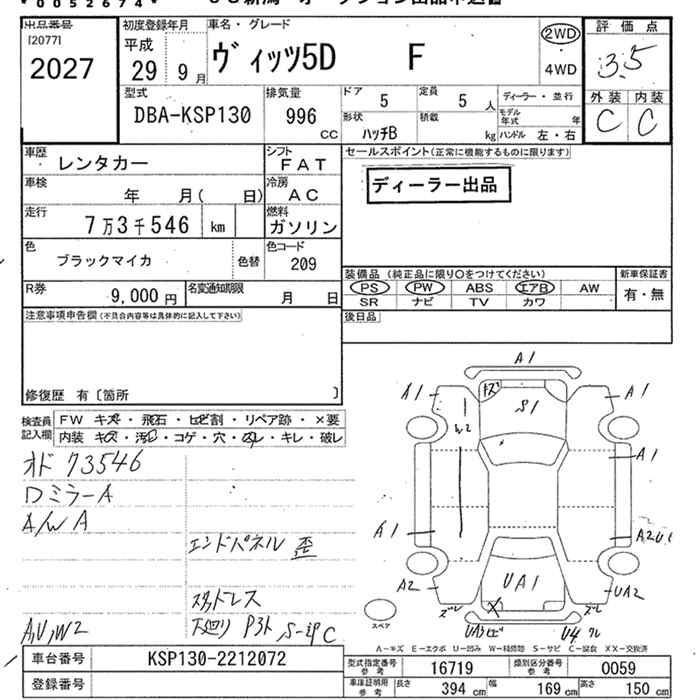 0052674
出品番号
[2077]
2027
初度登録年月
平成
29 9 月
車名・グレード
ヴィッツ5D F
2WD
4WD
評価点
3.5
外装 内装
C C
型式
DBA-KSP130
排気量
996 CC
ドア 5
定員 5 人
形状 ハッチB
積載 kg
ディーラー・並行
モデル年式 年
ハンドル 左・右
車歴 レンタカー
シフト FAT
車検 年 月( 日)
冷房 AC
走行 7万3千546 km
燃料 ガソリン
色 ブラックマイカ 色替
色コード 209
R券 9,000 円
名変通知期限 月 日
セールスポイント(正常に機能するものに限ります)
ディーラー出品
装備品(純正品に限り○をつけてください)
PS PW ABS エアB AW
SR ナビ TV カワ
新車保証書
有・無
後日品
注意事項申告欄(不具合内容等は具体的に記入して下さい)
修復歴 有〔箇所 〕
検査員記入欄
FW キズ・飛石・ヒビ割・リペア跡・×要
内装 キズ・汚レ・コゲ・穴・凹レ・キレ・破レ
オド 73546
ロミラーA
A/W A
エンドパネル 歪
スタッドレス
下廻り
A,U,W2
A1
A1
キズ
S1
A1
W2
A1
A1
A2
UA1
UA2
U4
スペア
A-キズ E-エクボ U-凹み W-補修跡 S-サビ C-腐食 XX-交換済
車台番号 KSP130-2212072
登録番号
型式指定番号 参考 16719
類別区分番号 参考 0059
車庫証明用 参考 長さ 394 cm 幅 169 cm 高さ 150 cm